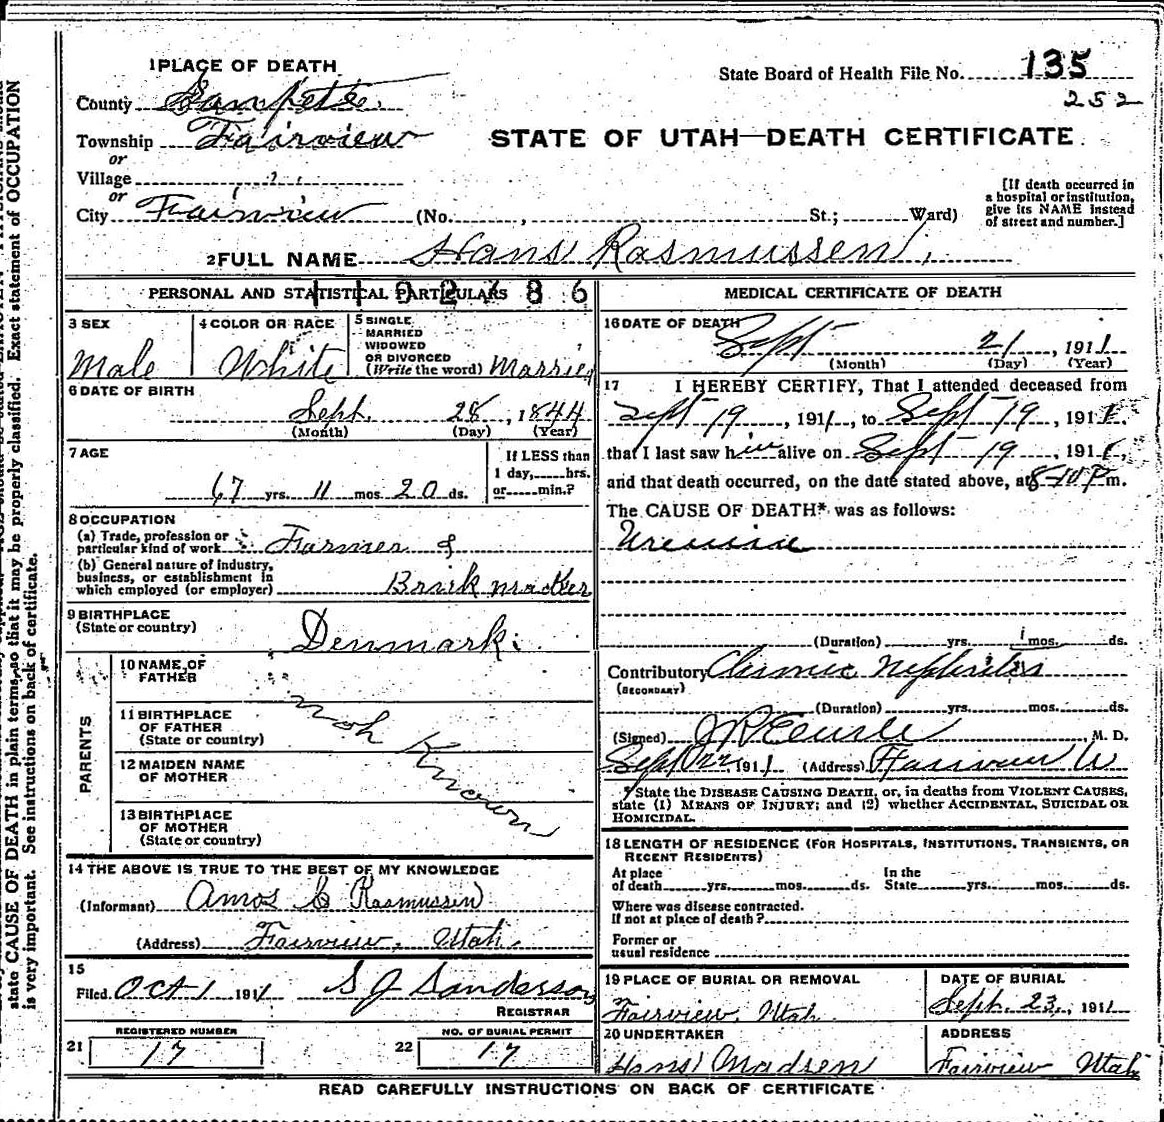 1 PLACE OF DEATH
State Board of Health File No. 135
County Sanpete.
252
Township Fairview
STATE OF UTAH—DEATH CERTIFICATE
or
Village
or
City Fairview (No. , St.; Ward)
[If death occurred in
a hospital or institution,
give its NAME instead
of street and number.]
2 FULL NAME Hans Rasmussen
PERSONAL AND STATISTICAL PARTICULARS
3 SEX
Male
4 COLOR OR RACE
White
5 SINGLE
MARRIED
WIDOWED
OR DIVORCED
(Write the word) Married
6 DATE OF BIRTH
Sept. 28, 1844
(Month) (Day) (Year)
7 AGE
67 yrs. 11 mos. 20 ds.
If LESS than
1 day, hrs.
or min.?
8 OCCUPATION
(a) Trade, profession or
particular kind of work Farmer &
(b) General nature of industry,
business, or establishment in
which employed (or employer) Brick macker
9 BIRTHPLACE
(State or country) Denmark.
PARENTS
10 NAME OF
FATHER
11 BIRTHPLACE
OF FATHER
(State or country)
12 MAIDEN NAME
OF MOTHER
13 BIRTHPLACE
OF MOTHER
(State or country)
not Known
14 THE ABOVE IS TRUE TO THE BEST OF MY KNOWLEDGE
(Informant) Amos C Rasmussen
(Address) Fairview, Utah.
15
Filed Oct 1 1911 S J Sanderson
REGISTRAR
REGISTERED NUMBER
21 17
NO. OF BURIAL PERMIT
22 17
MEDICAL CERTIFICATE OF DEATH
16 DATE OF DEATH
Sept 21, 1911
(Month) (Day) (Year)
17 I HEREBY CERTIFY, That I attended deceased from
Sept 19, 1911, to Sept 19, 1911,
that I last saw him alive on Sept 19, 1911,
and that death occurred, on the date stated above, at 8-10 P m.
The CAUSE OF DEATH* was as follows:
Uremia
(Duration) yrs. 1 mos. ds.
Contributory Chronic Nephritis
(SECONDARY)
(Duration) yrs. mos. ds.
(Signed) , M. D.
Sept 22, 1911 (Address) Fairview U
* State the DISEASE CAUSING DEATH, or, in deaths from VIOLENT CAUSES,
state (1) MEANS OF INJURY; and (2) whether ACCIDENTAL, SUICIDAL OR
HOMICIDAL.
18 LENGTH OF RESIDENCE (FOR HOSPITALS, INSTITUTIONS, TRANSIENTS, OR
RECENT RESIDENTS)
At place
of death yrs. mos. ds.
In the
State yrs. mos. ds.
Where was disease contracted.
If not at place of death?
Former or
usual residence
19 PLACE OF BURIAL OR REMOVAL
Fairview, Utah
DATE OF BURIAL
Sept. 23, 1911
20 UNDERTAKER
Hans Madsen
ADDRESS
Fairview Utah
READ CAREFULLY INSTRUCTIONS ON BACK OF CERTIFICATE
state CAUSE OF DEATH in plain terms, so that it may be properly classified. Exact statement of OCCUPATION
is very important. See instructions on back of certificate.